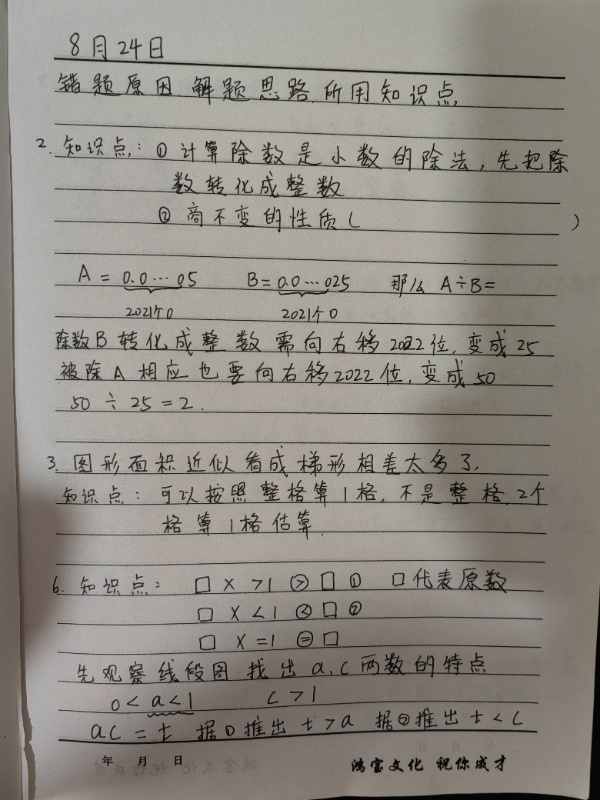 8月24日
错题原因 解题思路 所用知识点
2. 知识点：① 计算除数是小数的除法，先把除
数转化成整数
② 商不变的性质（ ）
A = 0.0…05 B = 0.0…025 那么 A÷B=
2021个0 2021个0
除数B 转化成整数需向右移2022位，变成25
被除A 相应也要向右移2022位，变成50
50 ÷ 25 = 2.
3. 图形面积近似看成梯形相差太多了.
知识点：可以按照整格算1格，不是整格，2个
格算1格估算.
6. 知识点： □ × >1 > □ ① □代表原数
□ × <1 < □ ②
□ × =1 = □
先观察线段图 找出a,c两数的特点
0 < a < 1 c > 1
ac = t 据①推出 t > a 据②推出 t < c
年 月 日 鸿宝文化 祝你成才